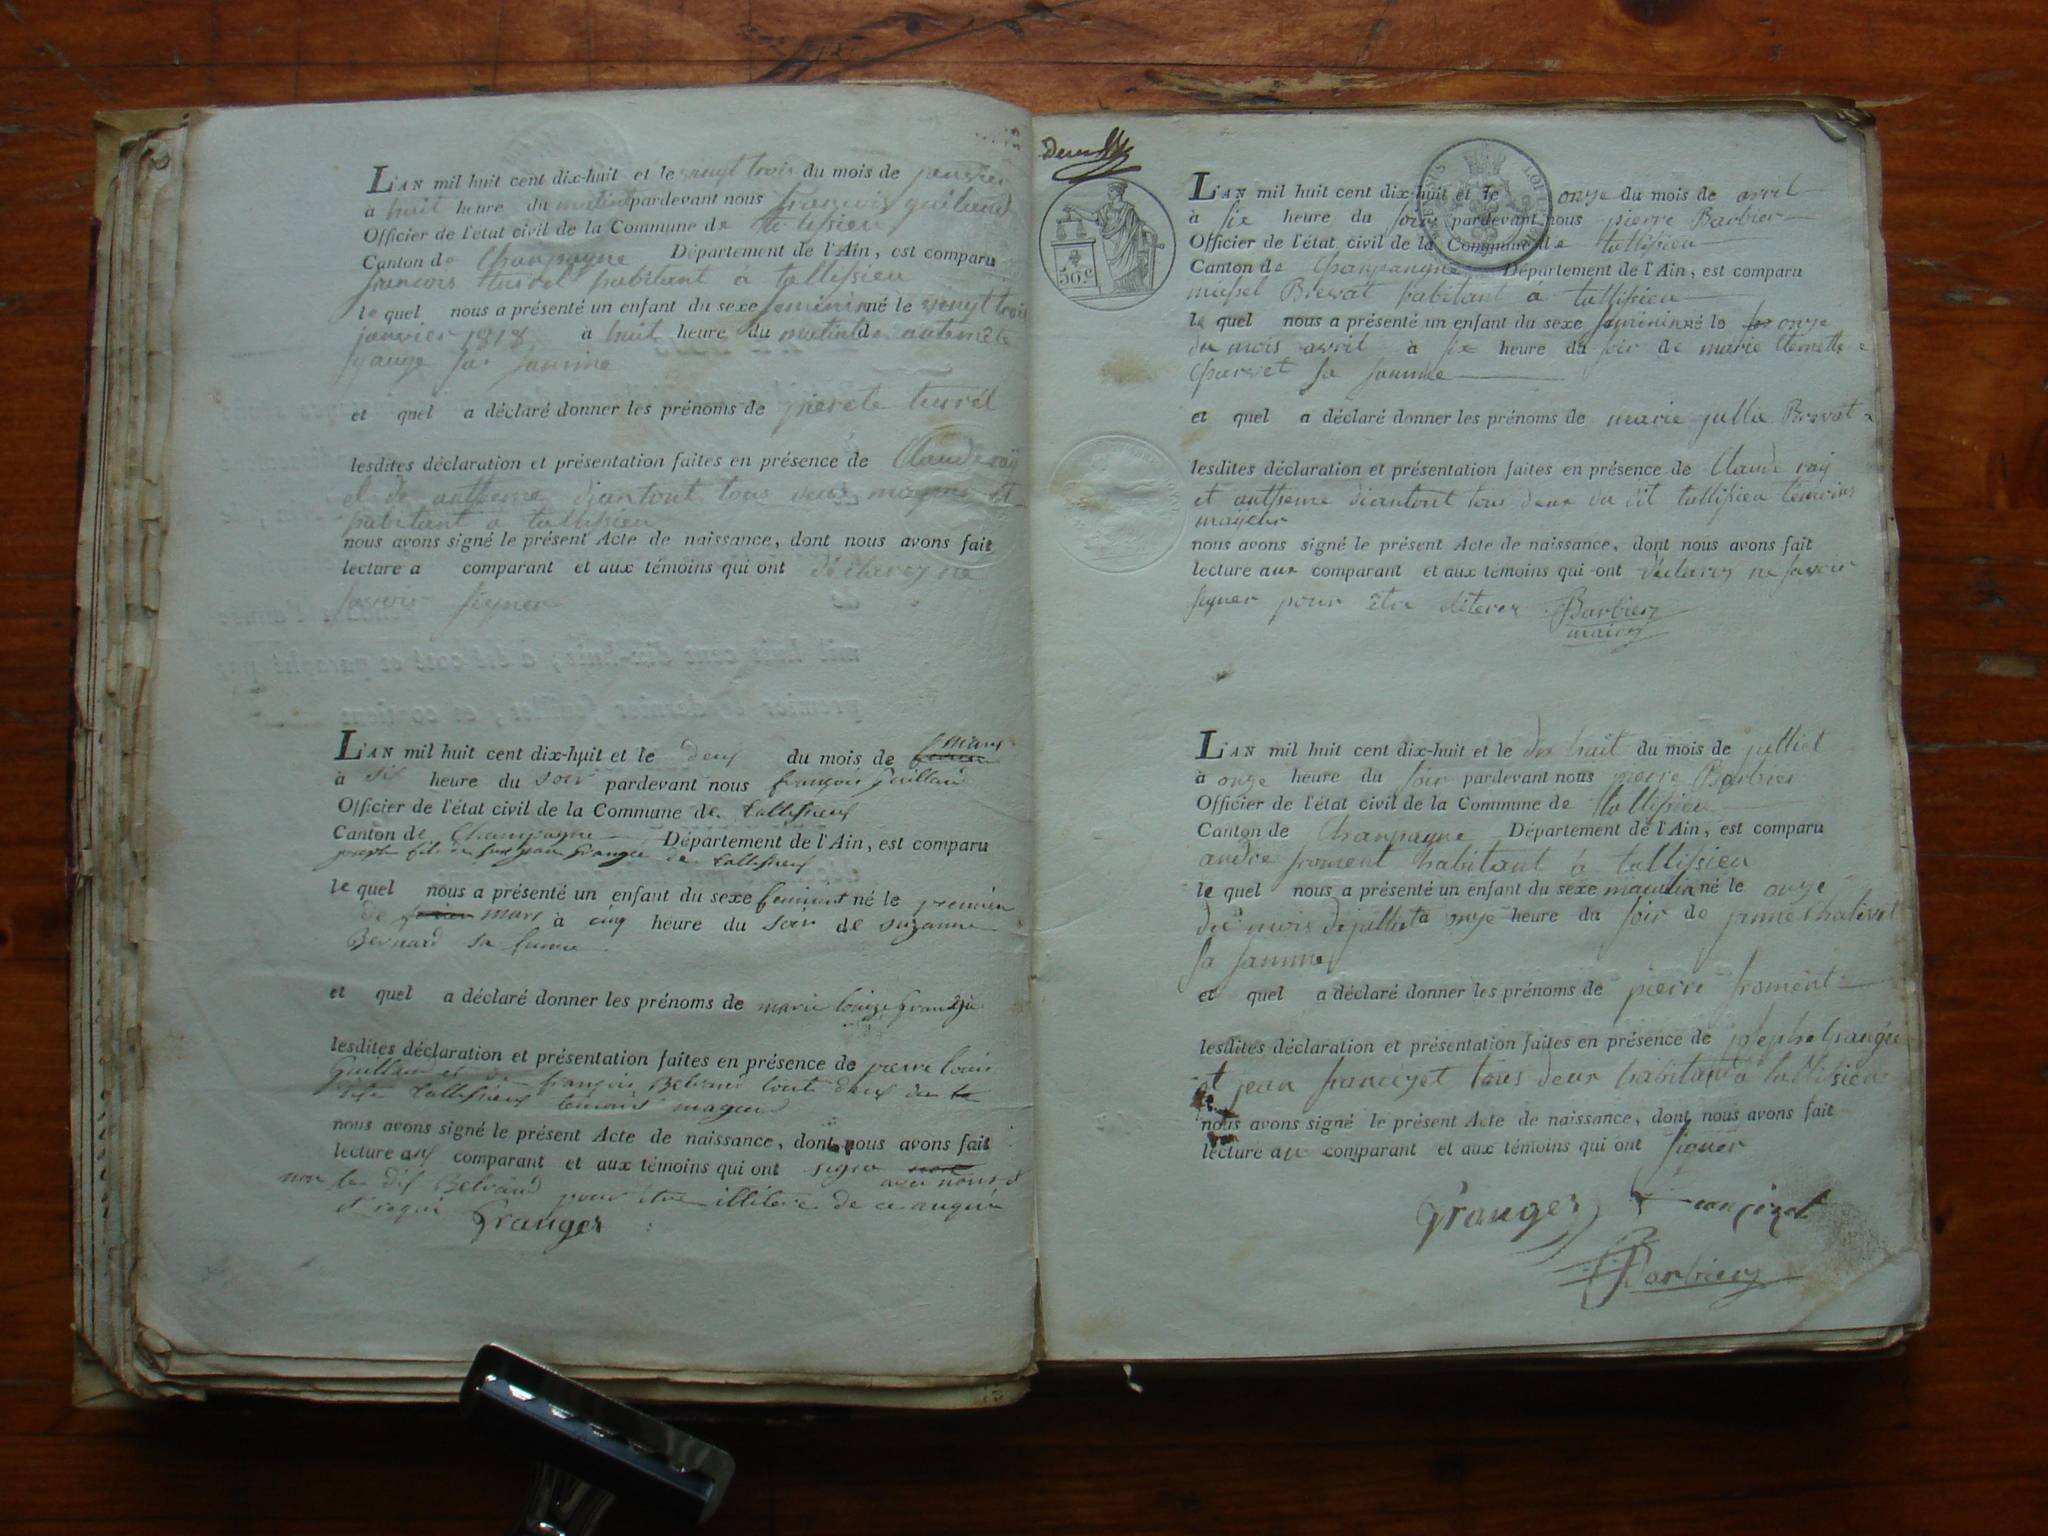 L'AN mil huit cent dix-huit et le vingt trois du mois de janvier
à huit heure du matin pardevant nous françois guiliend
Officier de l'état civil de la Commune de tallissieu
Canton de Chanpagne Département de l'Ain, est comparu
francois turrel habitant à tallissieu
le quel nous a présenté un enfant du sexe feminin né le vingt trois
janvier 1818 à huit heure du matin de
sa famme
et quel a déclaré donner les prénoms de pierete turrel
lesdites déclaration et présentation faites en présence de Claude ray
et de antheme diantout tous deux mageur et
habitant a tallissieu
nous avons signé le présent Acte de naissance, dont nous avons fait
lecture a comparant et aux témoins qui ont déclarez ne
savoir signer
L'AN mil huit cent dix-huit et le deux du mois de mars
à six heure du soir pardevant nous françois guilland
Officier de l'état civil de la Commune de tallissieux
Canton de Champagne Département de l'Ain, est comparu
joseph fils de feu jean Granger de tallissieux
le quel nous a présenté un enfant du sexe feminint né le premier
de mars à cinq heure du soir de suzanne
Bernard sa famme
et quel a déclaré donner les prénoms de marie louise
lesdites déclaration et présentation faites en présence de pierre louis
Guilland et de françois Betrand toute deux du
tallissieux temoins mageur
nous avons signé le présent Acte de naissance, dont nous avons fait
lecture aux comparant et aux témoins qui ont signé avec nous
non le dit Betrand pour être illitere de ce anquis
et requi Granger
deux
50 c
L'AN mil huit cent dix-huit et le onze du mois de avril
à six heure du soir pardevant nous pierre Barbier
Officier de l'état civil de la Commune de tallissieu
Canton de Chanpangne Département de l'Ain, est comparu
mishel Brevat habitant à tallissieu
le quel nous a présenté un enfant du sexe feminin né le onze
du mois avril à six heure du soir de marie
Charvet sa famme
et quel a déclaré donner les prénoms de marie jullie Brevat
lesdites déclaration et présentation faites en présence de Claude ray
et antheme diantout tous deux du dit tallissieu temoins
majeur
nous avons signé le présent Acte de naissance, dont nous avons fait
lecture aux comparant et aux témoins qui ont déclarez ne savoir
signer pour être Barbier
maire
L'AN mil huit cent dix-huit et le dix huit du mois de julliet
à onze heure du soir pardevant nous pierre Barbier
Officier de l'état civil de la Commune de tallissieu
Canton de Chanpagne Département de l'Ain, est comparu
andré froment habitant à tallissieu
le quel nous a présenté un enfant du sexe masculin né le onze
du mois de julliet à onze heure du soir de janne
sa famme
et quel a déclaré donner les prénoms de pierre froment
lesdites déclaration et présentation faites en présence de josephe Granger
et jean francizet tous deux habitant à tallissieu
nous avons signé le présent Acte de naissance, dont nous avons fait
lecture au comparant et aux témoins qui ont signer
Granger francizet
Barbier